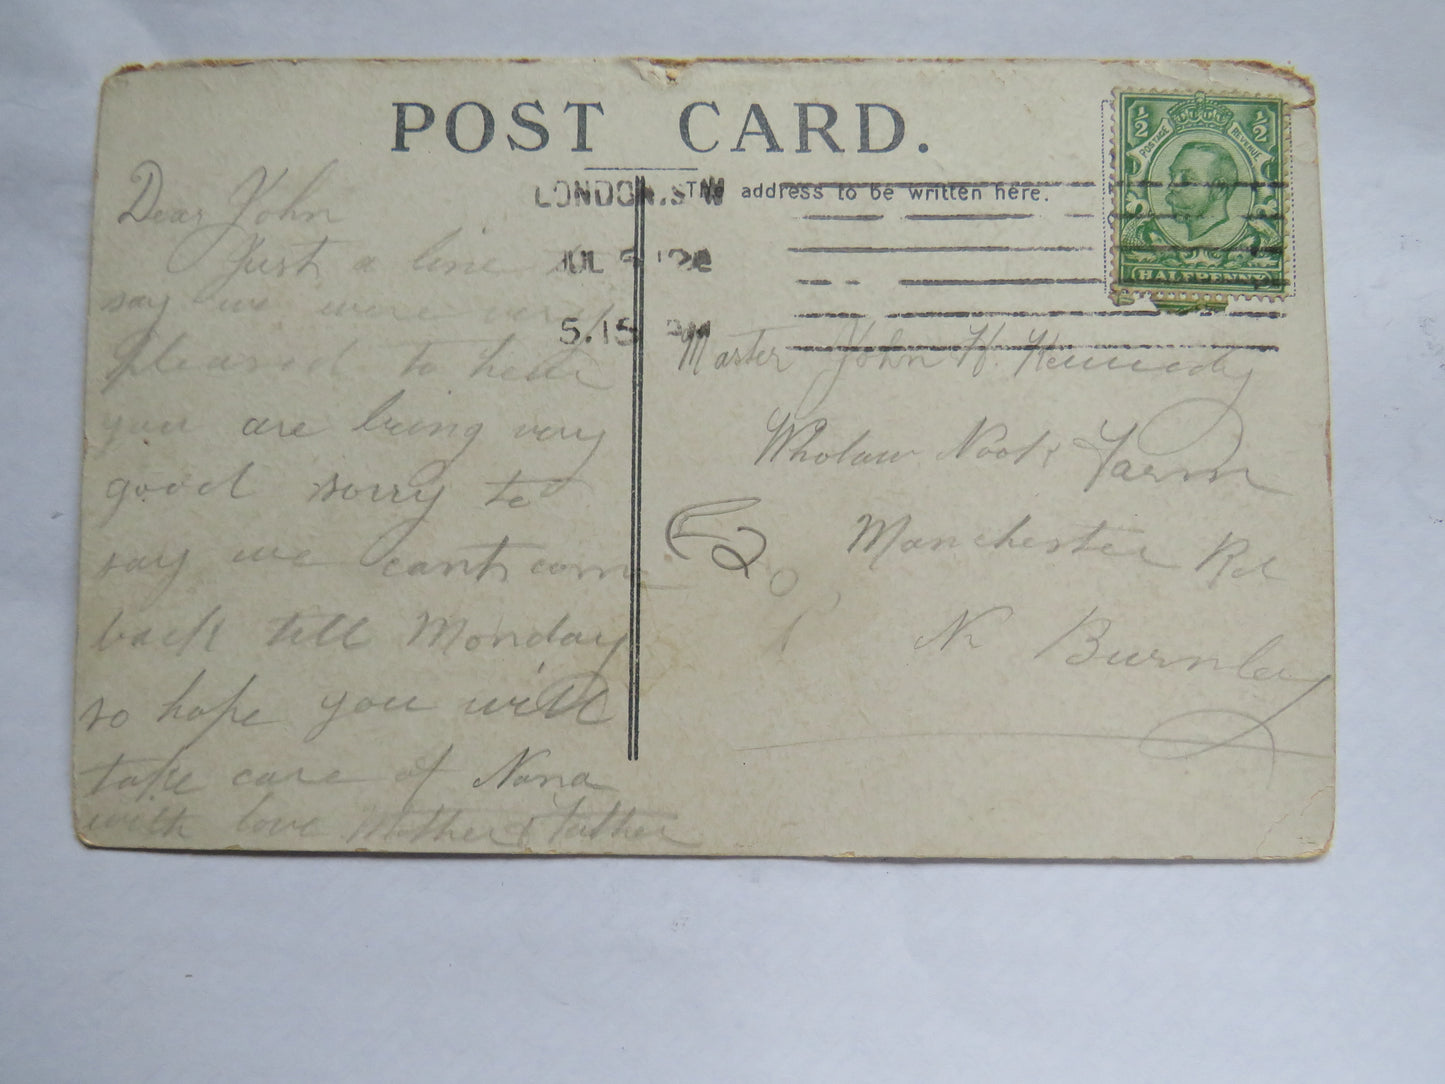 POST CARD.
The address to be written here.
LONDON. S.W
JUL 5 12
5.15 PM
½ ½
POSTAGE REVENUE
HALFPENNY
Dear John
Just a line to
say we were very
pleased to hear
you are being very
good sorry to
say we cant come
back till Monday
so hope you will
take care of Nana
with love Mother & father
Master John H. Kennedy
Wholaw Nook Farm
Manchester Rd
Nr Burnley